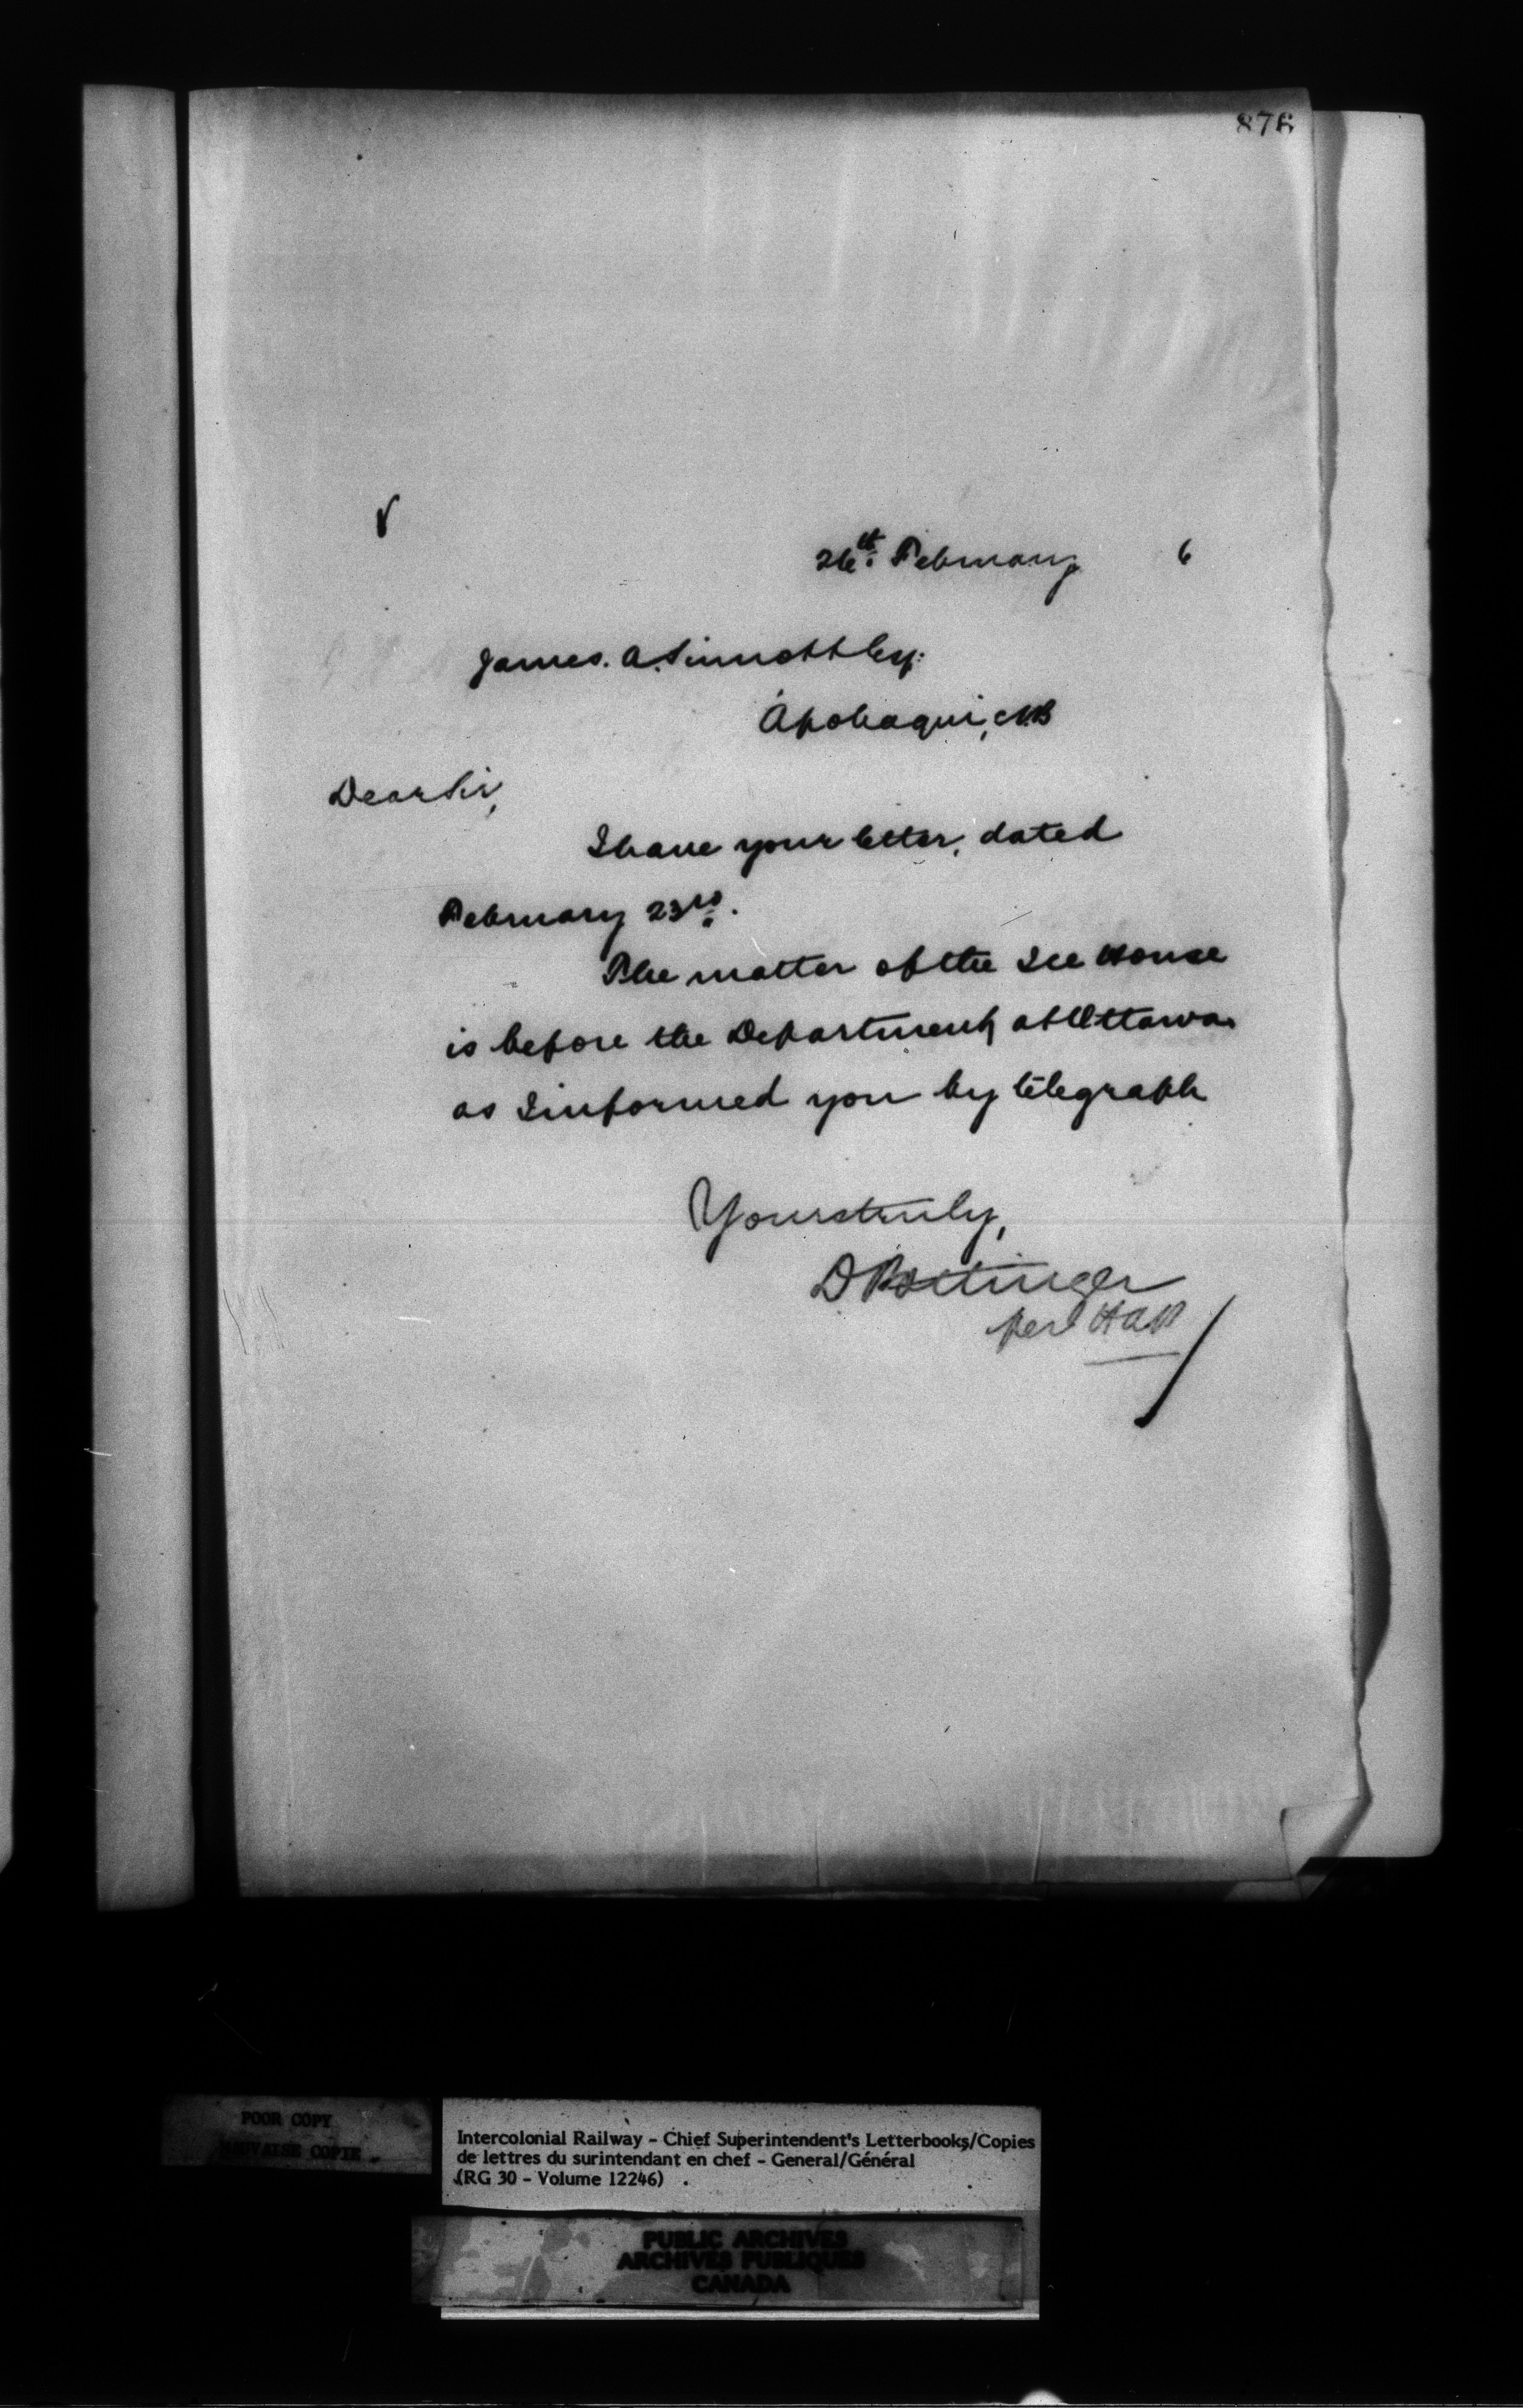 876
26th. February 6
James. A. Sinnott Esq:
Apohaqui, N.B
Dear Sir,
I have your letter, dated
February 23rd.
The matter of the Ice House
is before the Department at Ottawa
as I informed you by telegraph
Yours truly,
D Pottinger
per HAP
POOR COPY
MAUVAISE COPIE
Intercolonial Railway - Chief Superintendent's Letterbooks/Copies
de lettres du surintendant en chef - General/Général
(RG 30 - Volume 12246)
PUBLIC ARCHIVES
ARCHIVES PUBLIQUES
CANADA